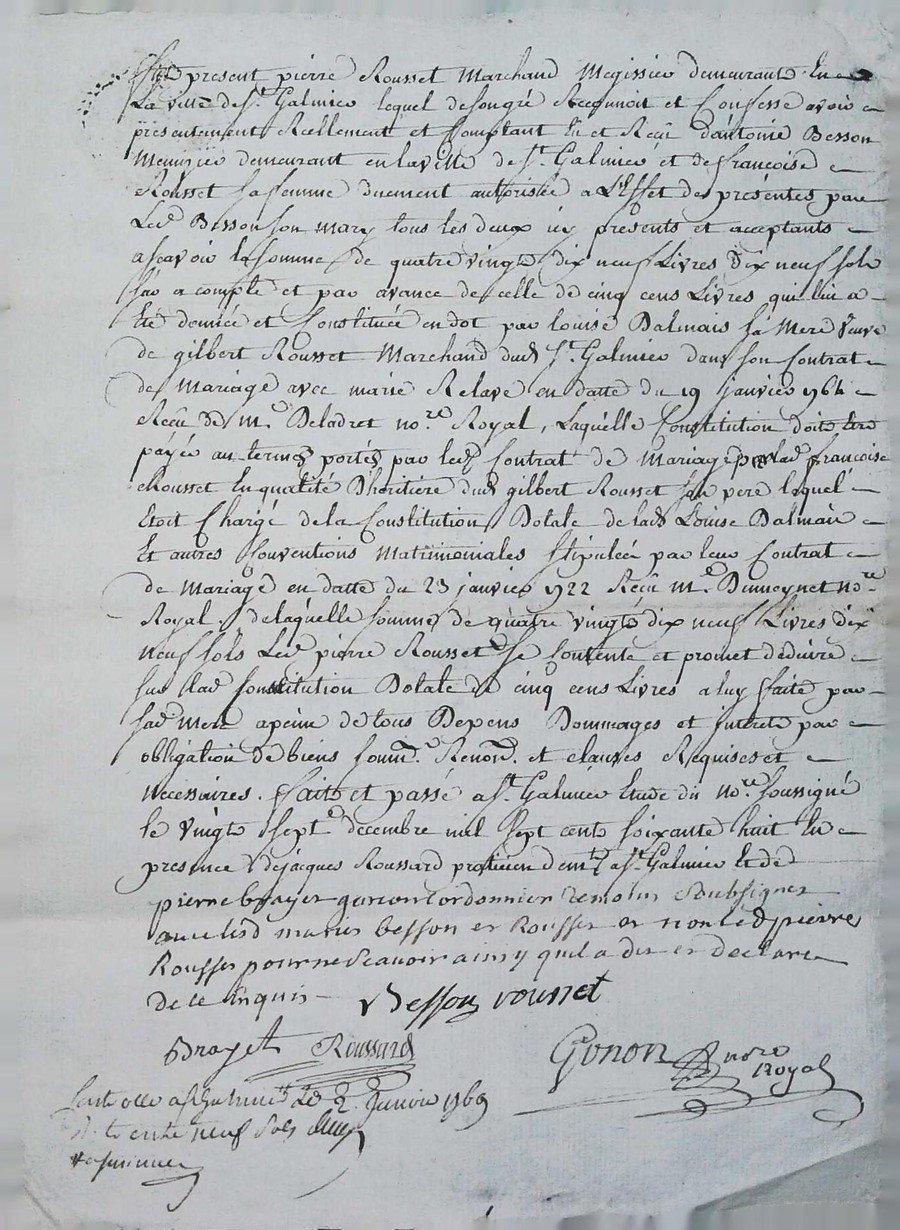 present pierre Rousset Marchand Megissier demeurant En
La ville de St. Galmier lequel de son gré Reconnoit et Confesse avoir
présentement Réellement et Comptant Eu et Reçu d'antoine Besson
Menuzier demeurant en la ville de St. Galmier et de francoise
Rousset sa femme duement autorisée a L'Effet des présentes par
Led. Besson son mary tous les deux icy présents et acceptants
ascavoir la somme de quatre vingts dix neuf Livres dix neuf sols
a compte et par avance de celle de cinq cens Livres qui lui a
Eté donnée et Constituée en dot par louise Dalmais sa Mere veuve
de gilbert Rousset Marchand dud. St. Galmier dans son Contrat
de Mariage avec marie Relave en datte du 19 janvier 1764
Reçu de M.e Deladret no.re Royal, Laquelle Constitution doit être
payée aux termes portés par led. Contrat de Mariage par lad. francoise
Rousset En qualité D'héritière dud. gilbert Rousset son pere lequel
Etoit Chargé de la Constitution Dotale de lad. Louise Dalmais
Et autres Conventions Matrimoniales stipulées par leur Contrat
de Mariage en datte du 23 janvier 1722 Reçu M.e Dumoynet no.re
Royal. de laquelle somme de quatre vingts dix neuf Livres dix
neuf sols Led. pierre Rousset se Contente et promet déduire
sur lad. Constitution Dotale de cinq cens Livres a luy faite par
sad. mere a peine de tous Depens Dommages et interets par
obligation de biens soum. Renon. et clauses Requises et
Necessaires. fait et passé a St. Galmier Etude du no.re soussigné
le vingt sept decembre mil sept cents soixante huit En
presence de jacques Roussard praticien demt. a St. Galmier Et de
pierre brayet garcon Cordonnier temoins soubsignes
avec lesd maries besson et Rousset et non led pierre
Rousset pour ne Scavoir ainsy quil a dit et declare
de ce Enquis
Besson rousset
Brayet Roussard
Gonon nore
Royal
Controllé a St Galmier Le 2 Janvier 1769
R. trente neuf Sols